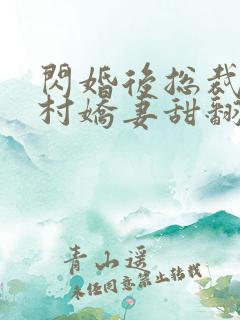 閃婚後总裁
村嬌妻甜翻
青山遥
未经同意禁止转载